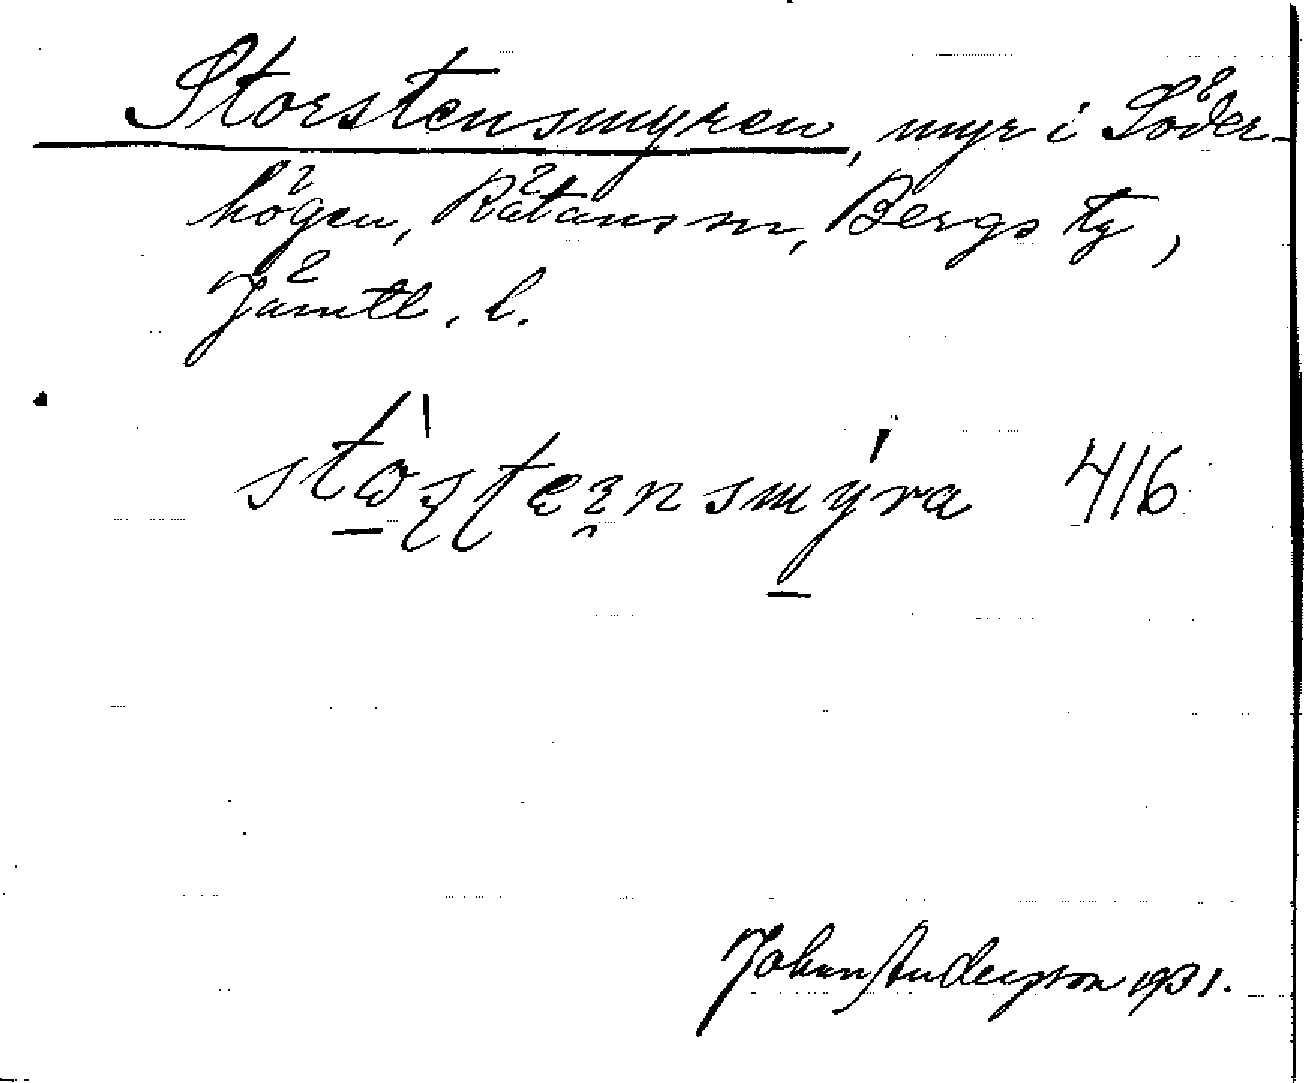 Storstensmyren, myr i Söder-
högen, Rätans sn, Bergs tg,
Jämtl. l.
416
Johan Anderson 1931.